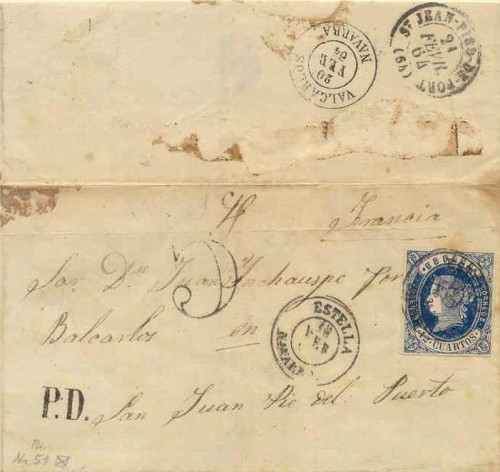 VALCARLOS
20
FEB
64
NAVARRA
ST JEAN-PIED-DE-PORT
21
FEVR.
64
(64)
Francia
Sor. Dn. Juan Inchauspe por
Balcarlos en
ESTELLA
FEB
12 CUARTOS
CORREOS
P.D.
San Juan Pie del Puerto